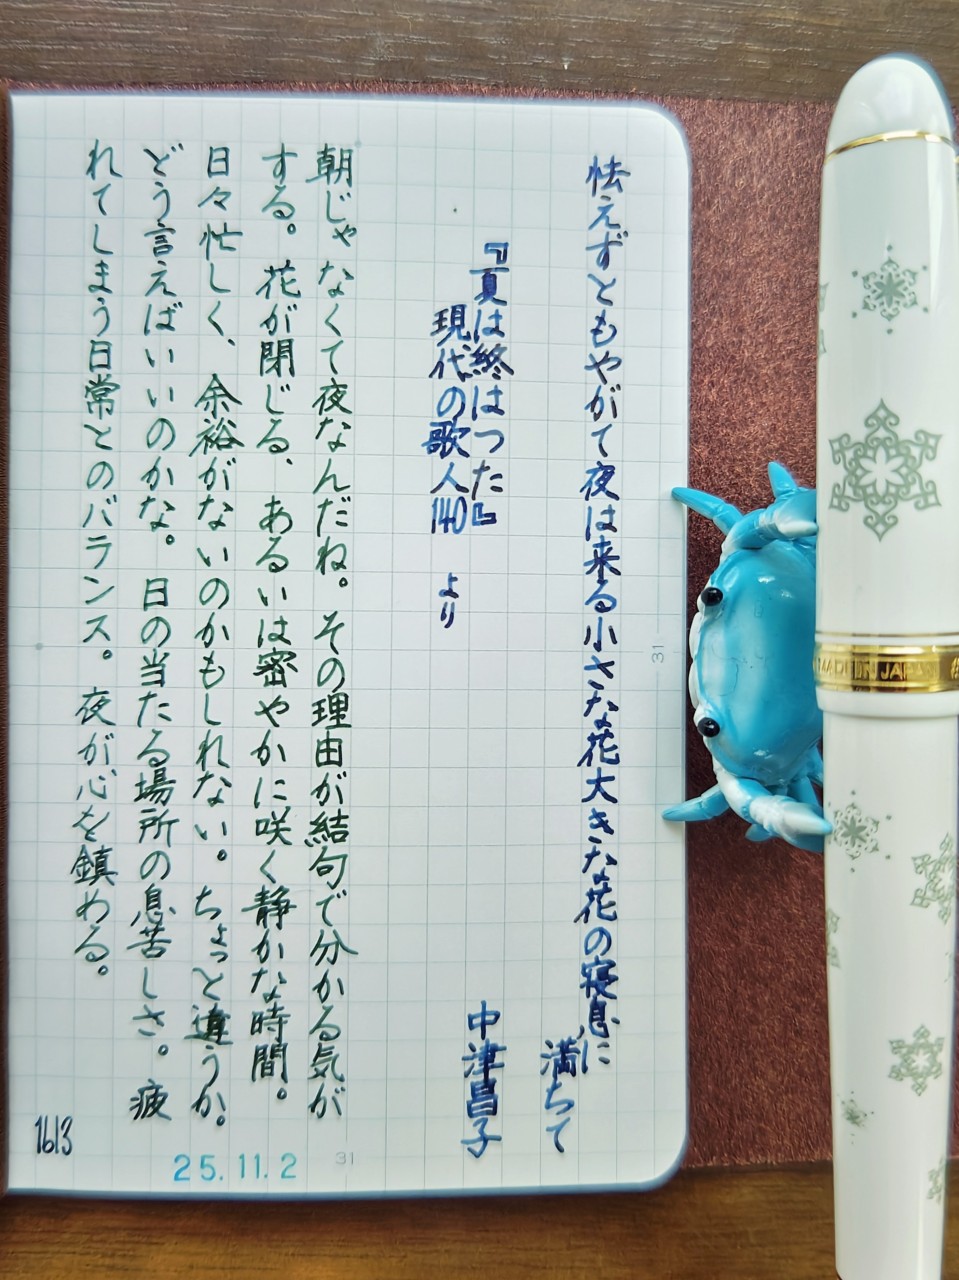 怯えずともやがて夜は来る小さな花大きな花の寝息に
満ちて
『夏は終はつた』
中津昌子
現代の歌人140 より
朝じゃなくて夜なんだね。その理由が結句で分かる気が
する。花が閉じる、あるいは密やかに咲く静かな時間。
日々忙しく、余裕がないのかもしれない。ちょっと違うか。
どう言えばいいのかな。日の当たる場所の息苦しさ。疲
れてしまう日常とのバランス。夜が心を鎮める。
1613
25.11.2
31
31
MADE IN JAPAN